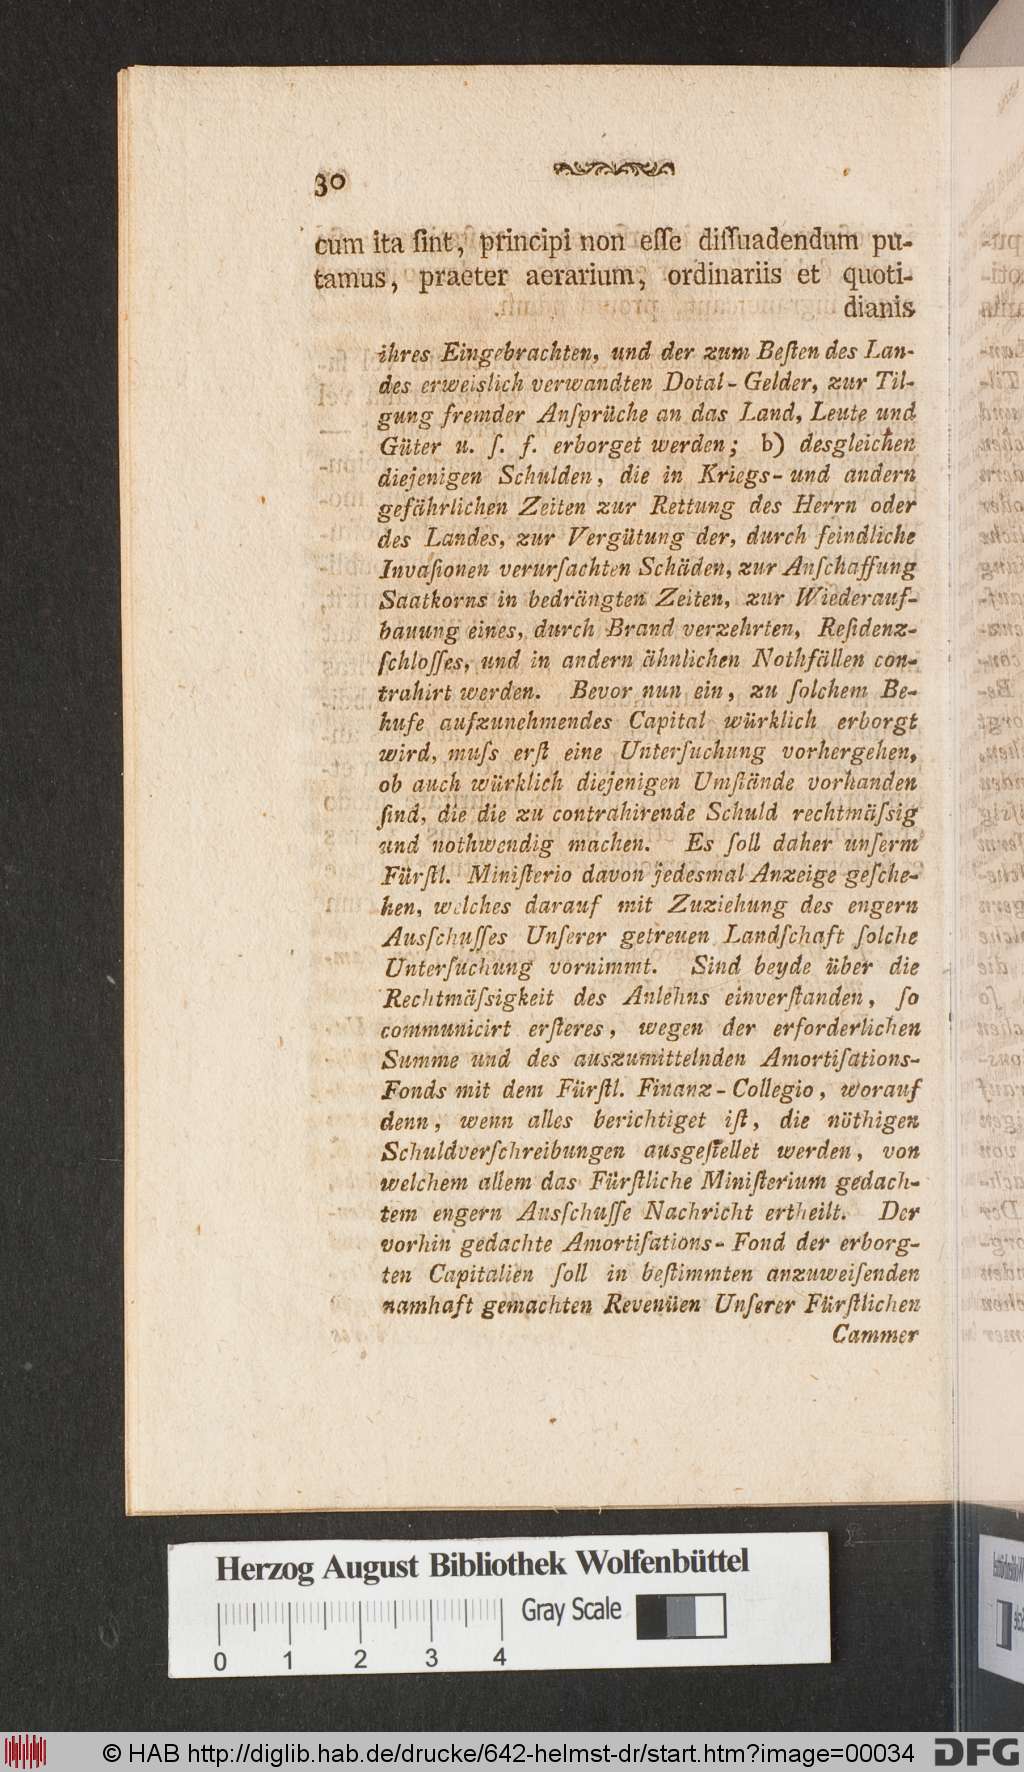 30
cum ita ſint, principi non eſſe diſſuadendum pu-
tamus, praeter aerarium, ordinariis et quoti-
dianis
ihres Eingebrachten, und der zum Beſten des Lan-
des erweislich verwandten Dotal-Gelder, zur Til-
gung fremder Anſprüche an das Land, Leute und
Güter u. ſ. f. erborget werden; b) desgleichen
diejenigen Schulden, die in Kriegs- und andern
gefährlichen Zeiten zur Rettung des Herrn oder
des Landes, zur Vergütung der, durch feindliche
Invaſionen verurſachten Schäden, zur Anſchaffung
Saatkorns in bedrängten Zeiten, zur Wiederauf-
bauung eines, durch Brand verzehrten, Reſidenz-
ſchloſſes, und in andern ähnlichen Nothfällen con-
trahirt werden. Bevor nun ein, zu ſolchem Be-
hufe aufzunehmendes Capital würklich erborgt
wird, muſs erſt eine Unterſuchung vorhergehen,
ob auch würklich diejenigen Umſtände vorhanden
ſind, die die zu contrahirende Schuld rechtmäſsig
und nothwendig machen. Es ſoll daher unſerm
Fürſtl. Miniſterio davon jedesmal Anzeige geſche-
hen, welches darauf mit Zuziehung des engern
Ausſchuſſes Unſerer getreuen Landſchaft ſolche
Unterſuchung vornimmt. Sind beyde über die
Rechtmäſsigkeit des Anlehns einverſtanden, ſo
communicirt erſteres, wegen der erforderlichen
Summe und des auszumittelnden Amortiſations-
Fonds mit dem Fürſtl. Finanz-Collegio, worauf
denn, wenn alles berichtiget iſt, die nöthigen
Schuldverſchreibungen ausgeſtellet werden, von
welchem allem das Fürſtliche Miniſterium gedach-
tem engern Ausſchuſſe Nachricht ertheilt. Der
vorhin gedachte Amortiſations-Fond der erborg-
ten Capitalien ſoll in beſtimmten anzuweiſenden
namhaft gemachten Revenüen Unſerer Fürſtlichen
Cammer
Herzog August Bibliothek Wolfenbüttel
Gray Scale
0 1 2 3 4
© HAB http://diglib.hab.de/drucke/642-helmst-dr/start.htm?image=00034
DFG